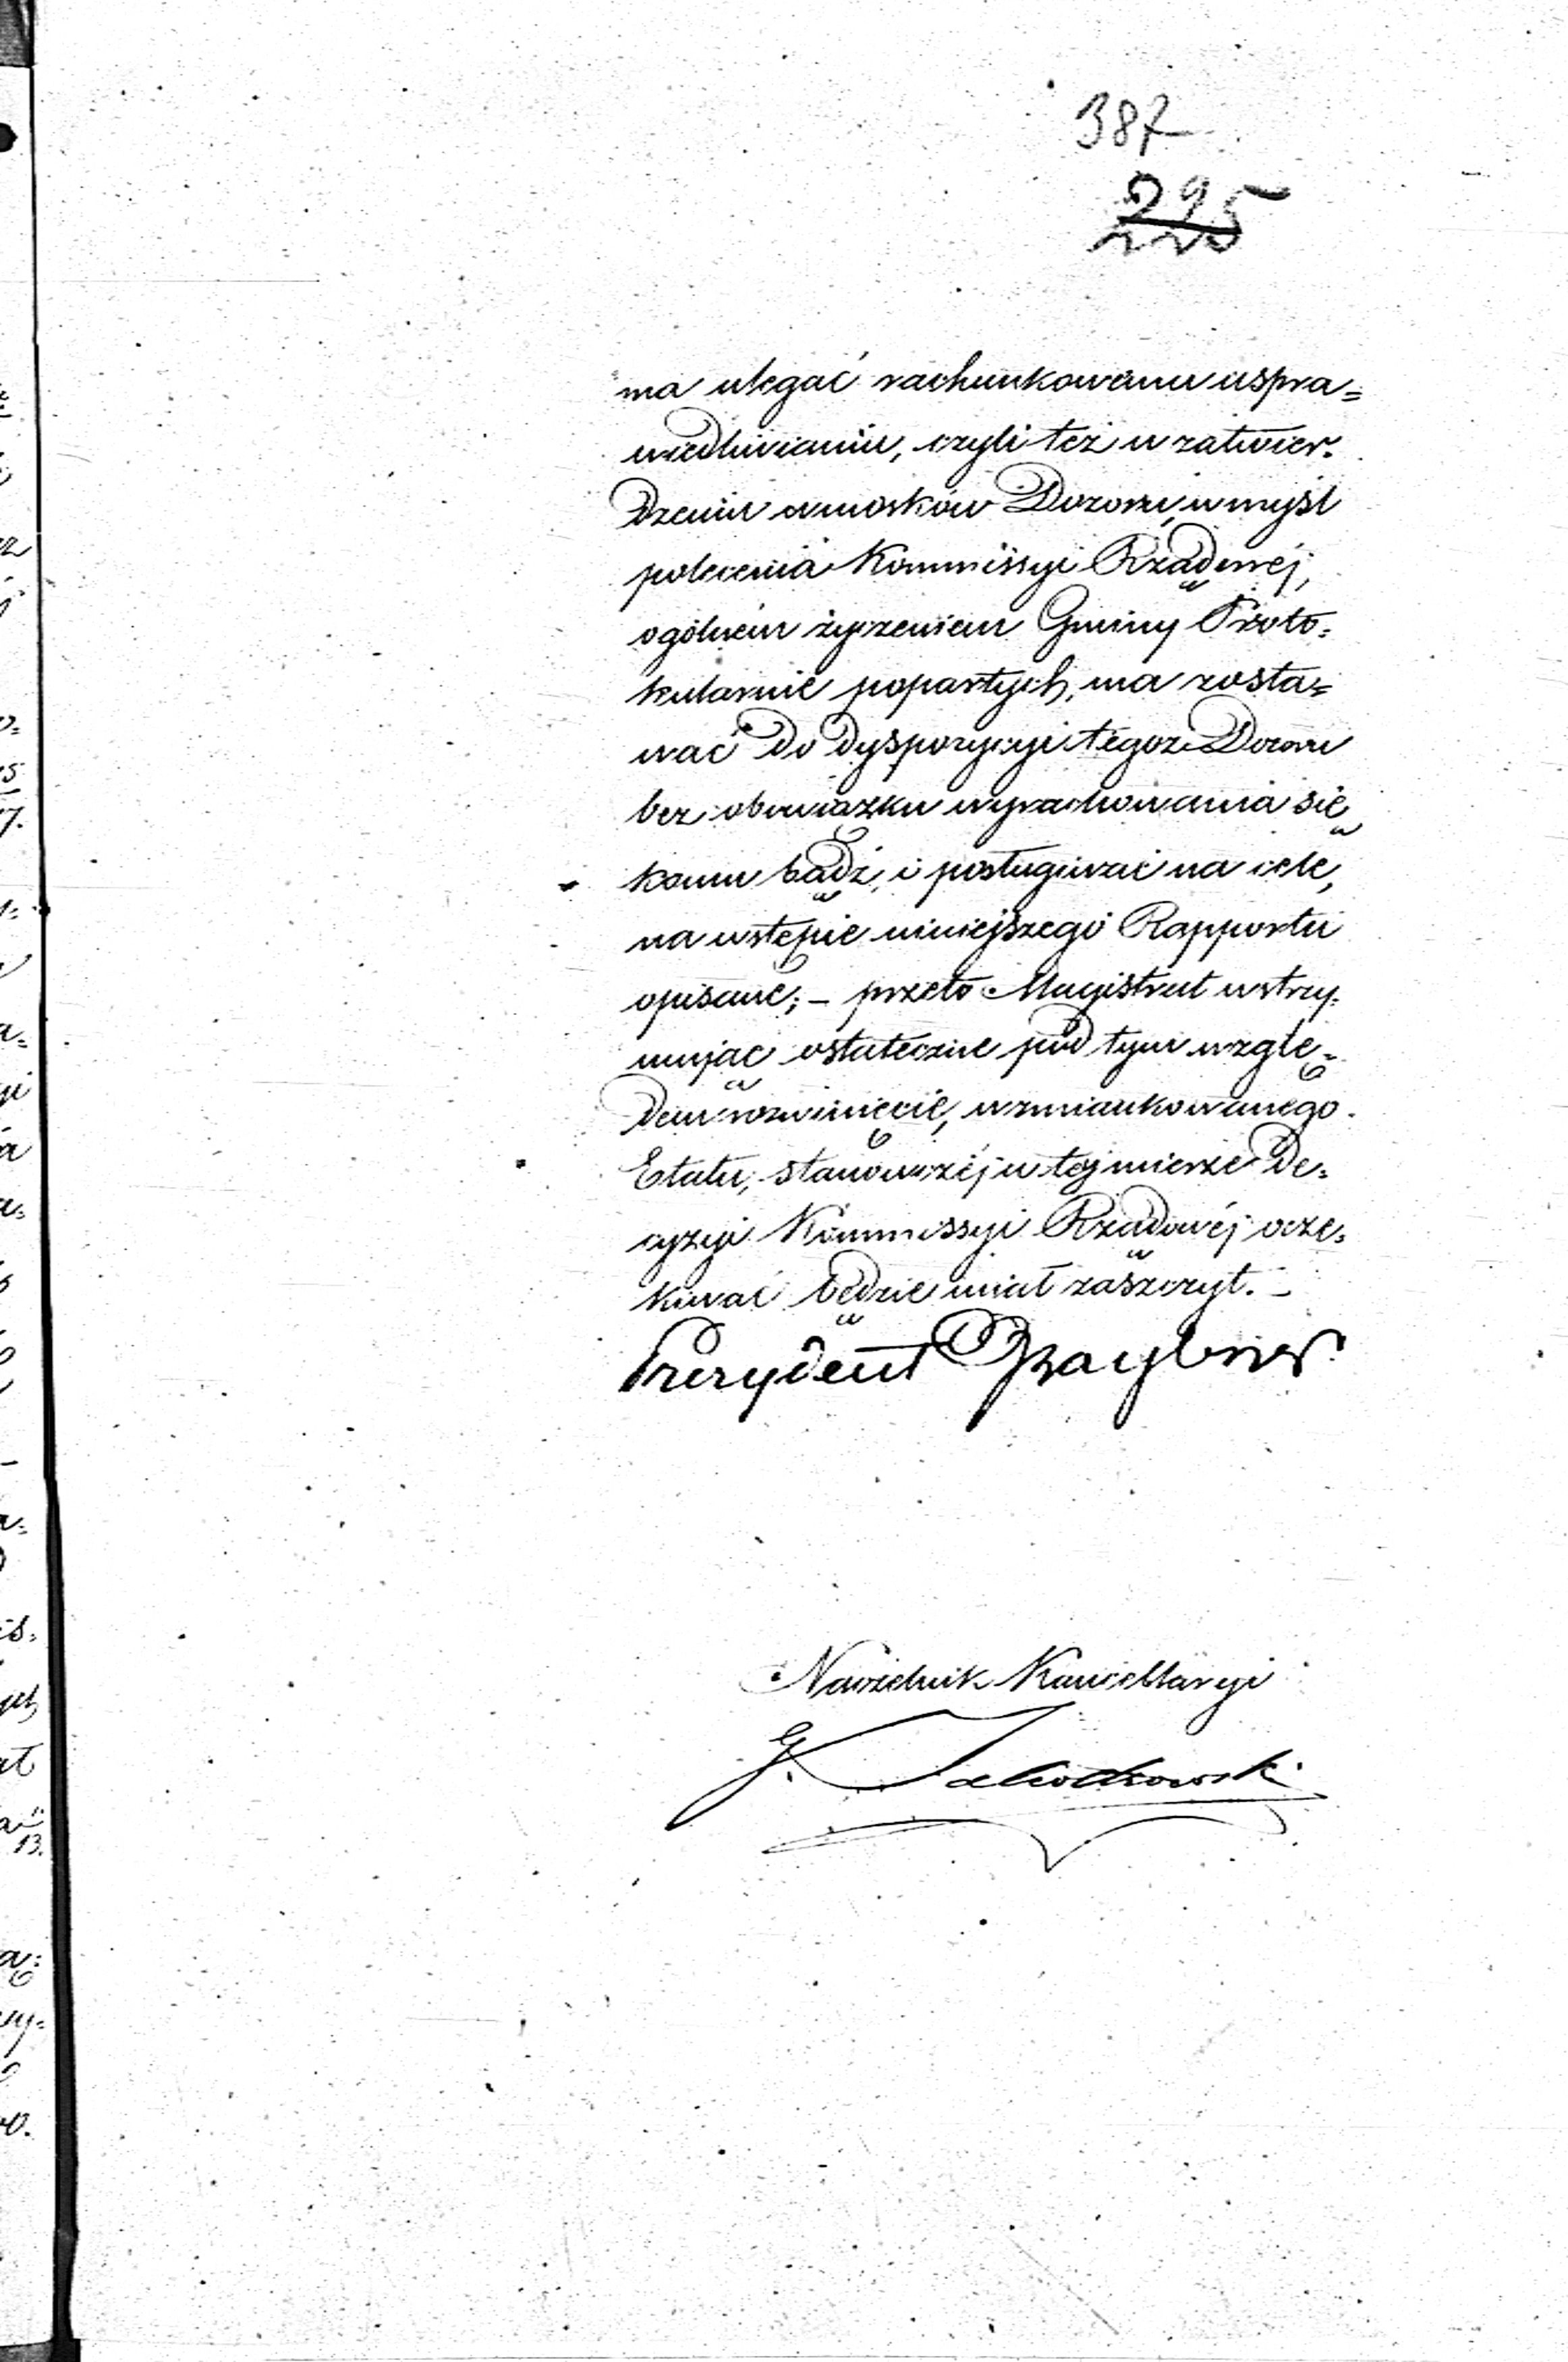 387
295
ma ulegać rachunkowemu uspra=
wiedliwianiu, czyli też w zatwier-
dzeniu wniosków Dozoru, w myśl
polecenia Kommissyi Rządowéj,
ogólném życzeniem Gminy Proto=
kularnie popartych, ma zosta=
wać do dyspozycyi tegoż Dozoru
bez obowiązku wyrachowania się
komu bądź, i posługiwać na cele,
na wstępie niniejszego Rapportu
opisane; – przeto Magistrat wstrzy-
mując ostateczne pod tym wzglę=
dem rozwinięcie, wzmiankowanego
Etatu, stanowczéj w téj mierze De=
cyzyi Kommissyi Rządowéj ocze=
kiwać będzie miał zaszczyt. –
Prezydent
Naczelnik Kancellaryi